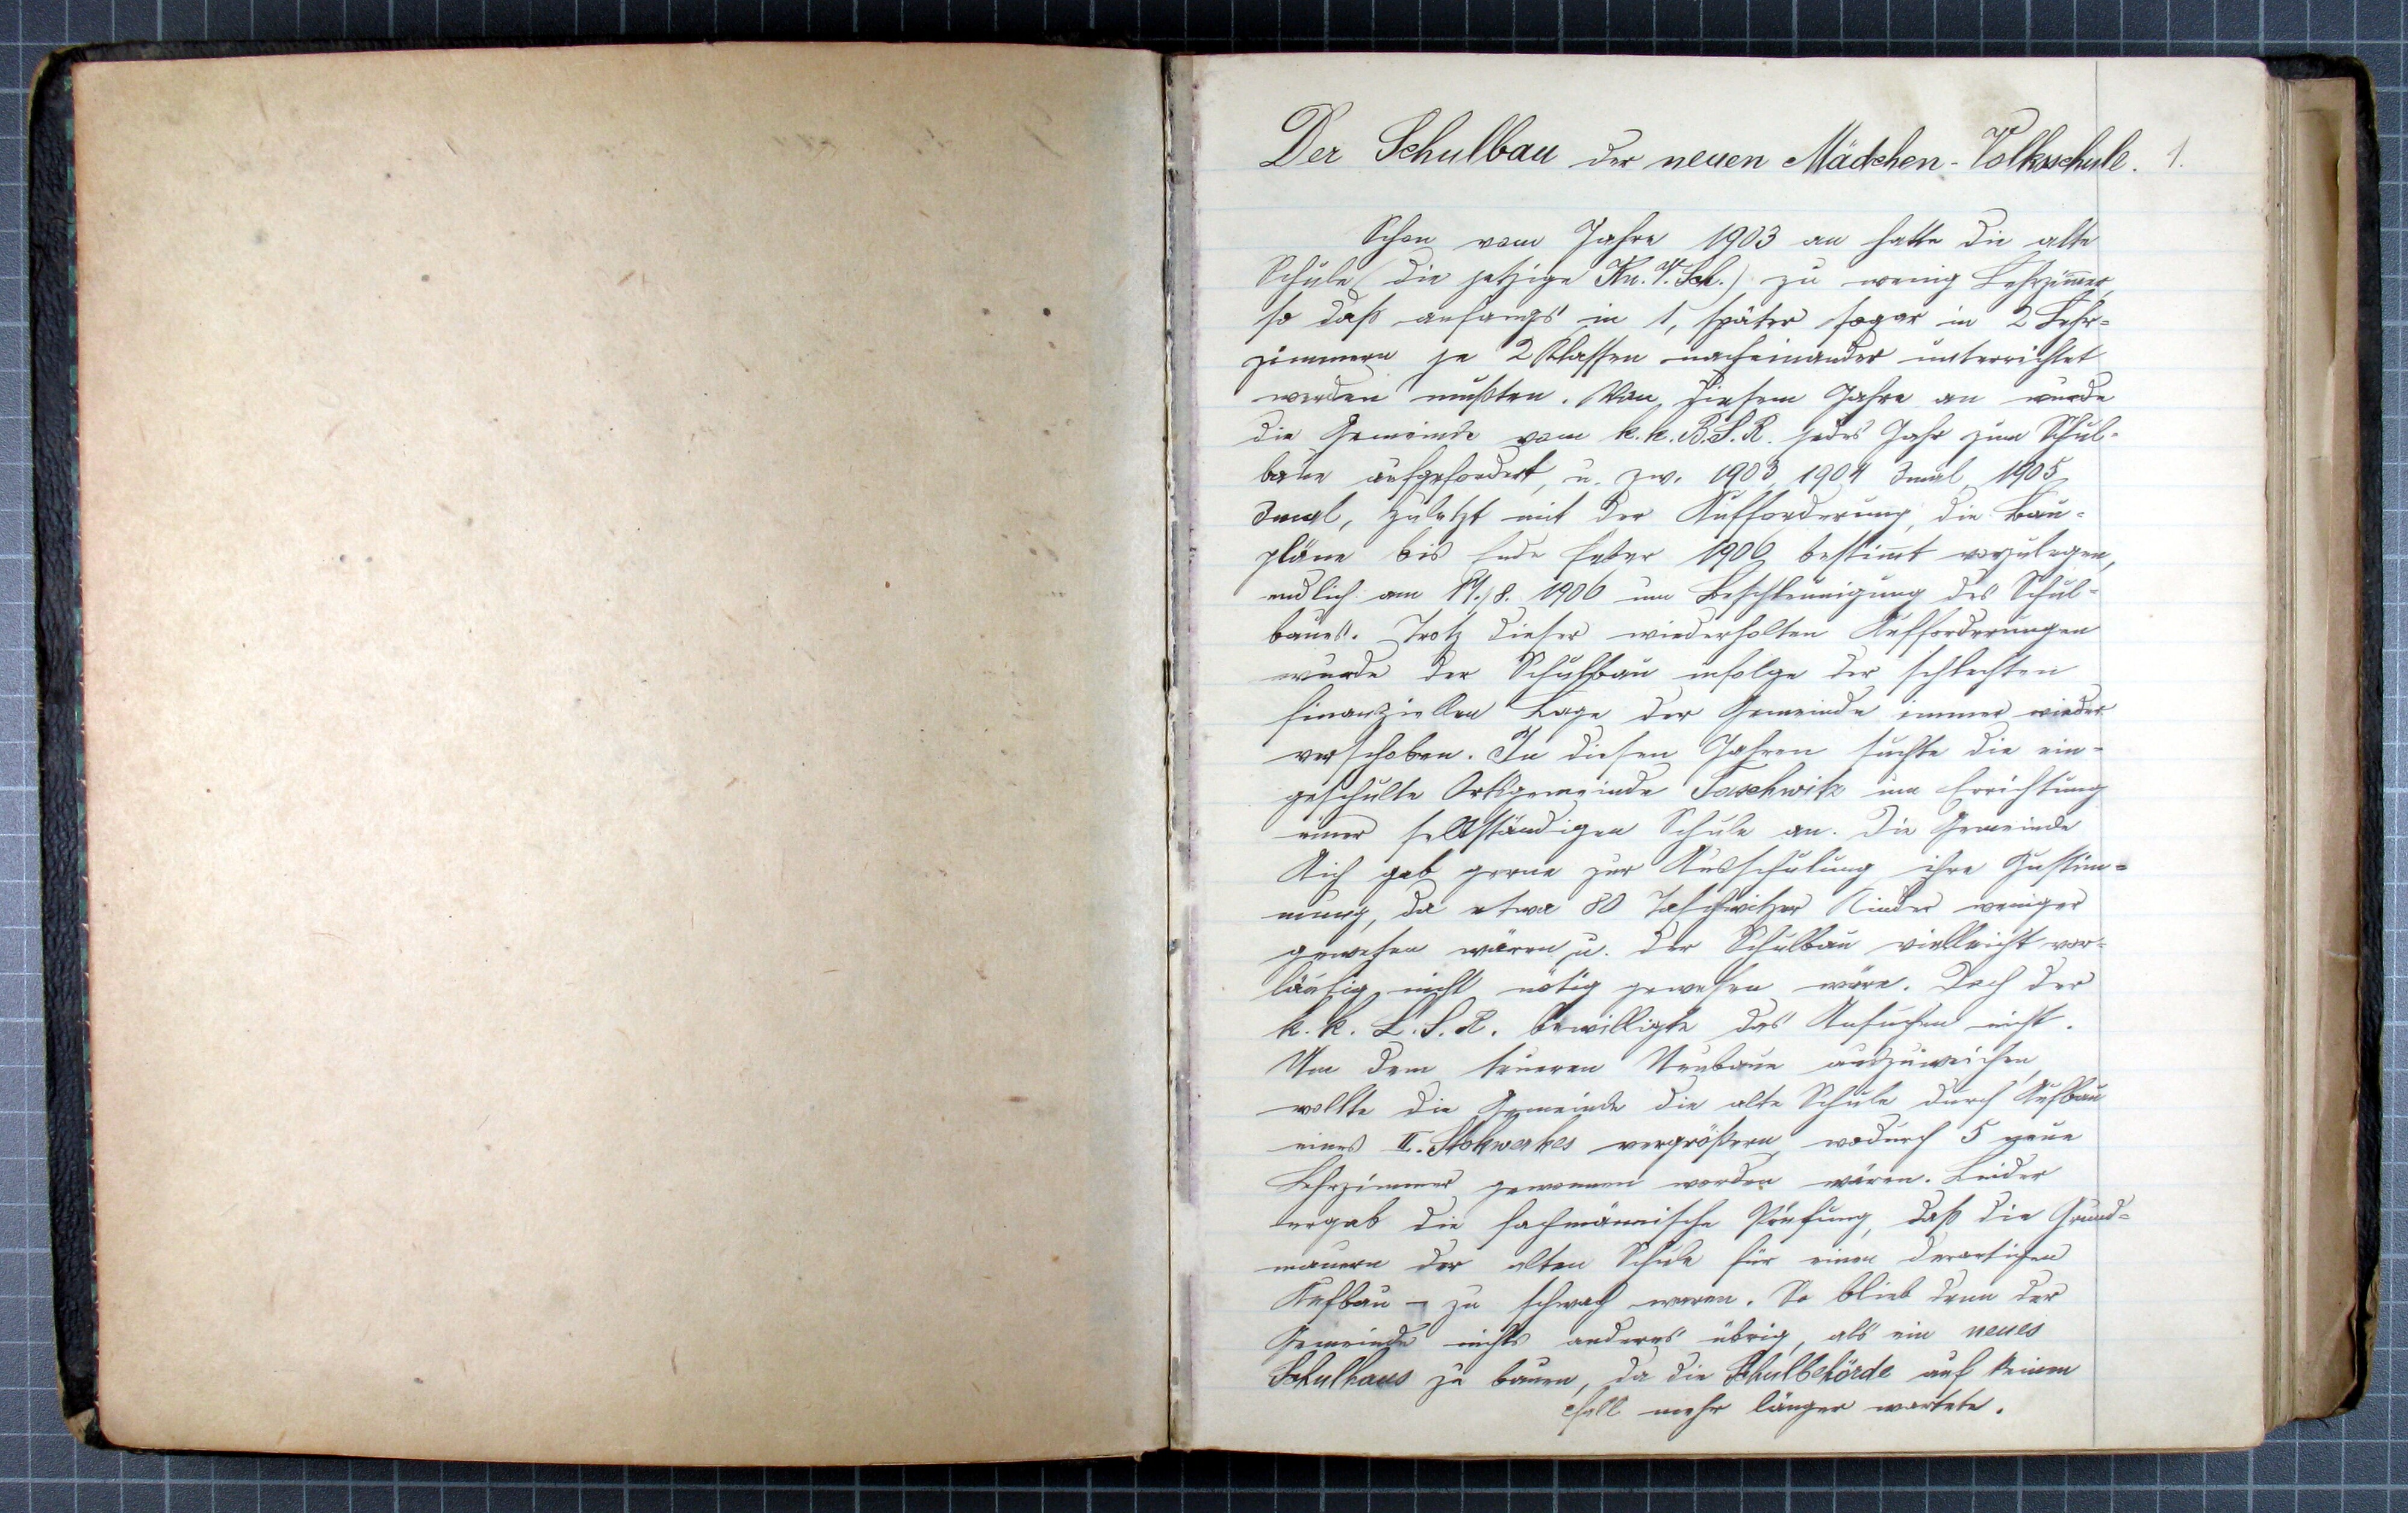 Der Schulbau der neuen Mädchen-Volksschule. 1.
Schon vom Jahre 1903 an hatte die alte
Schule (die jetzige Kn. V. Sch.) zu wenig Lehrzimmer,
so daß anfangs in 1, später sogar in 2 Lehr-
zimmern je 2 Klassen nacheinander unterrichtet
werden mußten. Von diesem Jahre an wurde
die Gemeinde vom k. k. B.S.R. jedes Jahr zum Schul-
baue aufgefordert, u. zw. 1903, 1904 3mal, 1905
3mal, zuletzt mit der Aufforderung, die Bau-
pläne bis Ende Feber 1906 bestimmt vorzulegen,
endlich am /8. 1906 um Beschleunigung des Schul-
baues. Trotz dieser wiederholten Aufforderungen
wurde der Schulbau infolge der schlechten
finanziellen Lage der Gemeinde immer wieder
verschoben. In diesen Jahren suchte die ein-
geschulte Ortsgemeinde Taschwitz um Errichtung
einer selbständigen Schule an. Die Gemeinde
Aich gab gerne zur Ausschulung ihre Zustim-
mung, da etwa 80 Taschwitzer Kinder weniger
gewesen wären u. der Schulbau vielleicht vor-
läufig nicht nötig gewesen wäre. Doch der
k. k. L. S. R. bewilligte das Ansuchen nicht.
Um dem teueren Neubaue auszuweichen,
wollte die Gemeinde die alte Schule durch Aufbau
eines II. Stokwerkes vergrößern, wodurch 5 neue
Lehrzimmer gewonnen worden wären. Leider
ergab die fachmännische Prüfung, daß die Grund-
mauern der alten Schule für einen derartigen
Aufbau – zu schwach waren. So blieb denn der
Gemeinde nichts anderes übrig, als ein neues
Schulhaus zu bauen, da die Schulbehörde auf keinen
Fall mehr länger wartete.